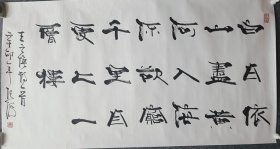 白日依
山盡黄
河入海
流欲窮
千里目
更上一
層樓
王之渙詩一首
辛卯